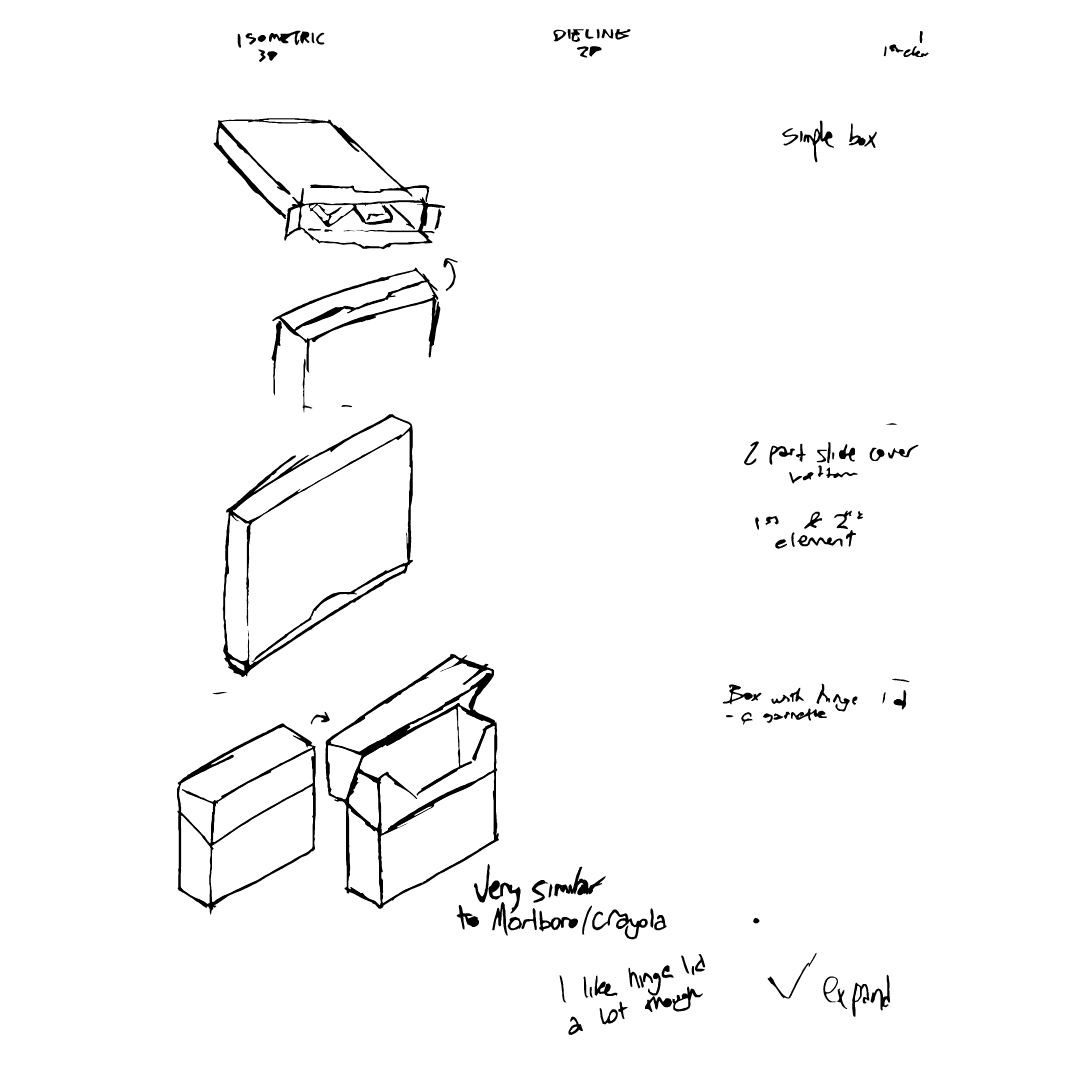 ISOMETRIC
3D
DIELINE
2D
simple box
2 part slide cover
bottom
1st & 2nd
element
Box with hinge lid
Very similar
to Marlboro/Crayola
I like hinge lid
a lot though
expand